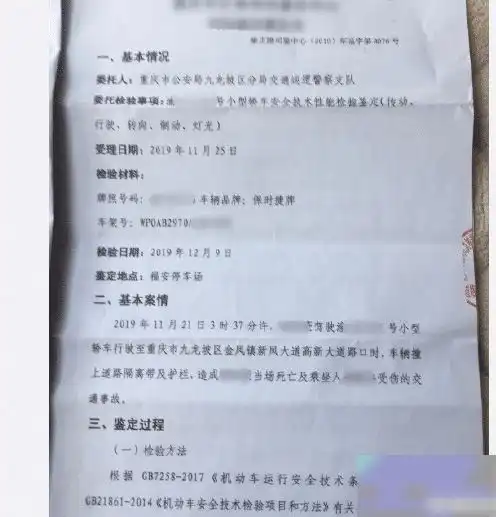 一、基本情况
委托人：重庆市公安局九龙坡区分局交通巡逻警察支队
委托检验事项： 号小型轿车安全技术性能检验鉴定（传动、
行驶、转向、制动、灯光）
受理日期：2019 年 11 月 25 日
检验材料：
牌照号码： 车辆品牌：保时捷牌
车架号：WP0AB2970/
检验日期：2019 年 12 月 9 日
鉴定地点：福安停车场
二、基本案情
2019 年 11 月 21 日 3 时 37 分许， 驾驶 号小型
轿车行驶至重庆市九龙坡区金凤镇新凤大道高新大道路口时，车辆撞
上道路隔离带及护栏，造成 当场死亡及乘坐人 受伤的交
通事故。
三、鉴定过程
（一）检验方法
根据 GB7258-2017《机动车运行安全技术条
GB21861-2014《机动车安全技术检验项目和方法》有关